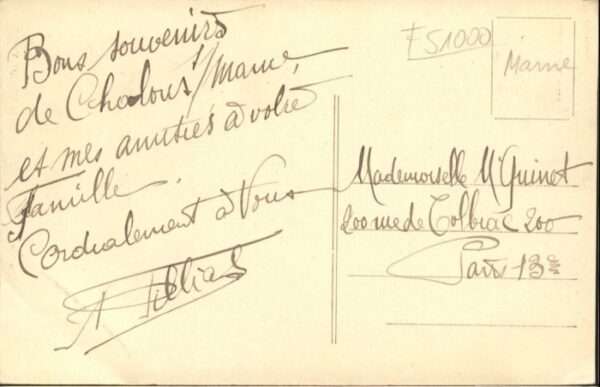 Bons souvenirs
de Chalons s/Marne,
et mes amitiés à votre
Famille.
Cordialement à Vous
FS1000
Marne
Mademoiselle M Guinot
200 rue de Tolbiac 200
Paris 13e